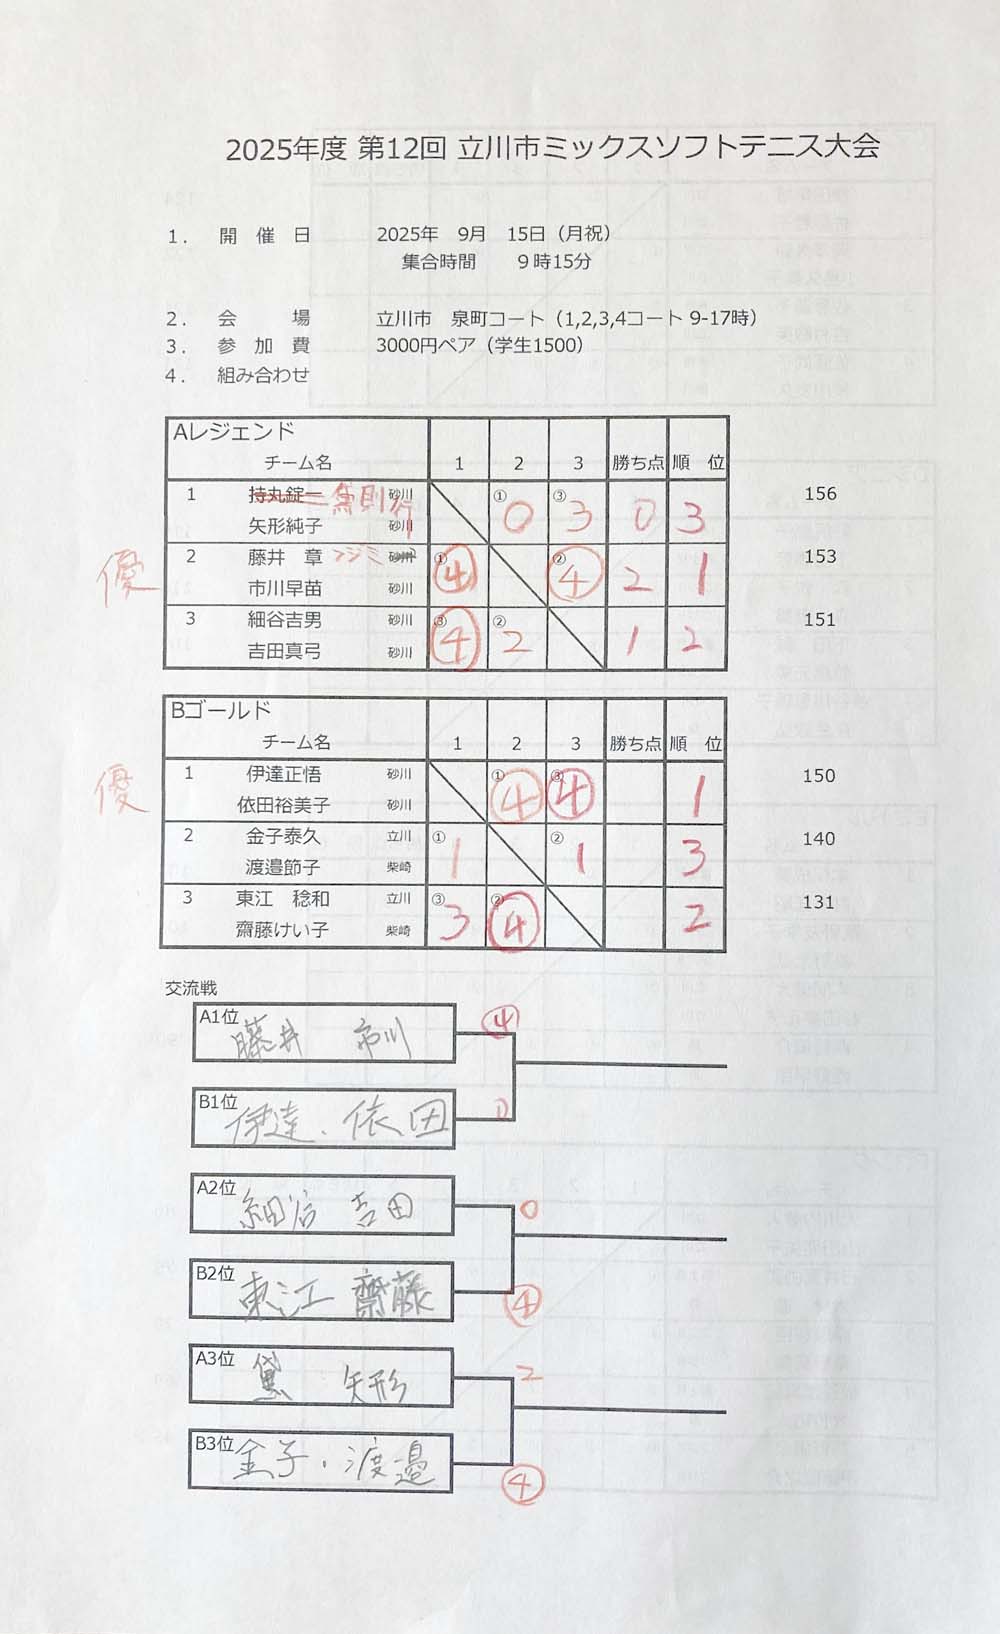 2025年度 第12回 立川市ミックスソフトテニス大会
1. 開 催 日 2025年 9月 15日（月祝）
集合時間 9時15分
2. 会 場 立川市 泉町コート（1,2,3,4コート 9-17時）
3. 参 加 費 3000円ペア（学生1500）
4. 組み合わせ
Aレジェンド
チーム名 1 2 3 勝ち点 順 位
1 持丸錠一 則行 砂川 ① 0 ③ 3 0 3 156
矢形純子 砂川
優 2 藤井 章 フジミ 砂川 ① 4 ② 4 2 1 153
市川早苗 砂川
3 細谷吉男 砂川 ③ 4 ② 2 1 2 151
吉田真弓 砂川
Bゴールド
チーム名 1 2 3 勝ち点 順 位
優 1 伊達正悟 砂川 ① 4 ③ 4 1 150
依田裕美子 砂川
2 金子泰久 立川 ① 1 ② 1 3 140
渡邉節子 柴崎
3 東江 稔和 立川 ③ 3 ② 4 2 131
齋藤けい子 柴崎
交流戦
A1位 藤井 市川 4
B1位 伊達、依田 0
A2位 細谷 吉田 0
B2位 東江 齋藤 4
A3位 黛 矢形 2
B3位 金子・渡邉 4